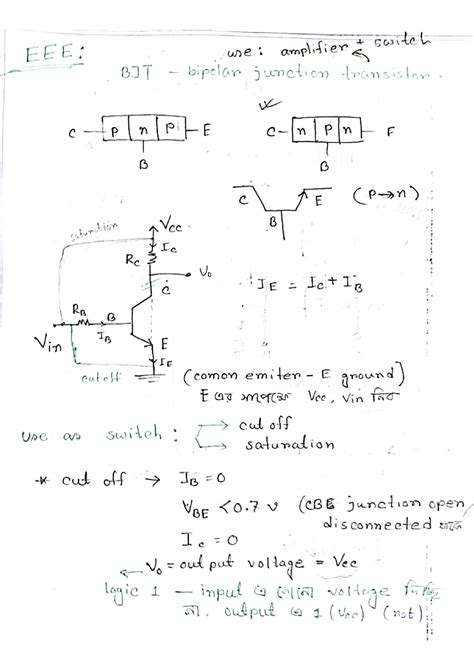 EEE:
use: amplifier + switch
BJT - bipolar junction transistor.
C p n p E
B
C n p n E
B
C E (P→n)
B
saturation
Vcc
Ic
Rc
Vo
C
IE = Ic + IB
RB
B
IB
Vin
E
IE
cut off
(comon emiter - E ground)
E এর সাপেক্ষে Vcc, Vin নিব
use as switch: → cut off
→ saturation
* cut off → IB = 0
VBE < 0.7 v (CBE junction open
disconnected থাকে
Ic = 0
Vo = output voltage = Vcc
logic 1 — input এ কোনো voltage দিচ্ছি
না. output এ 1 (Vcc) (not)